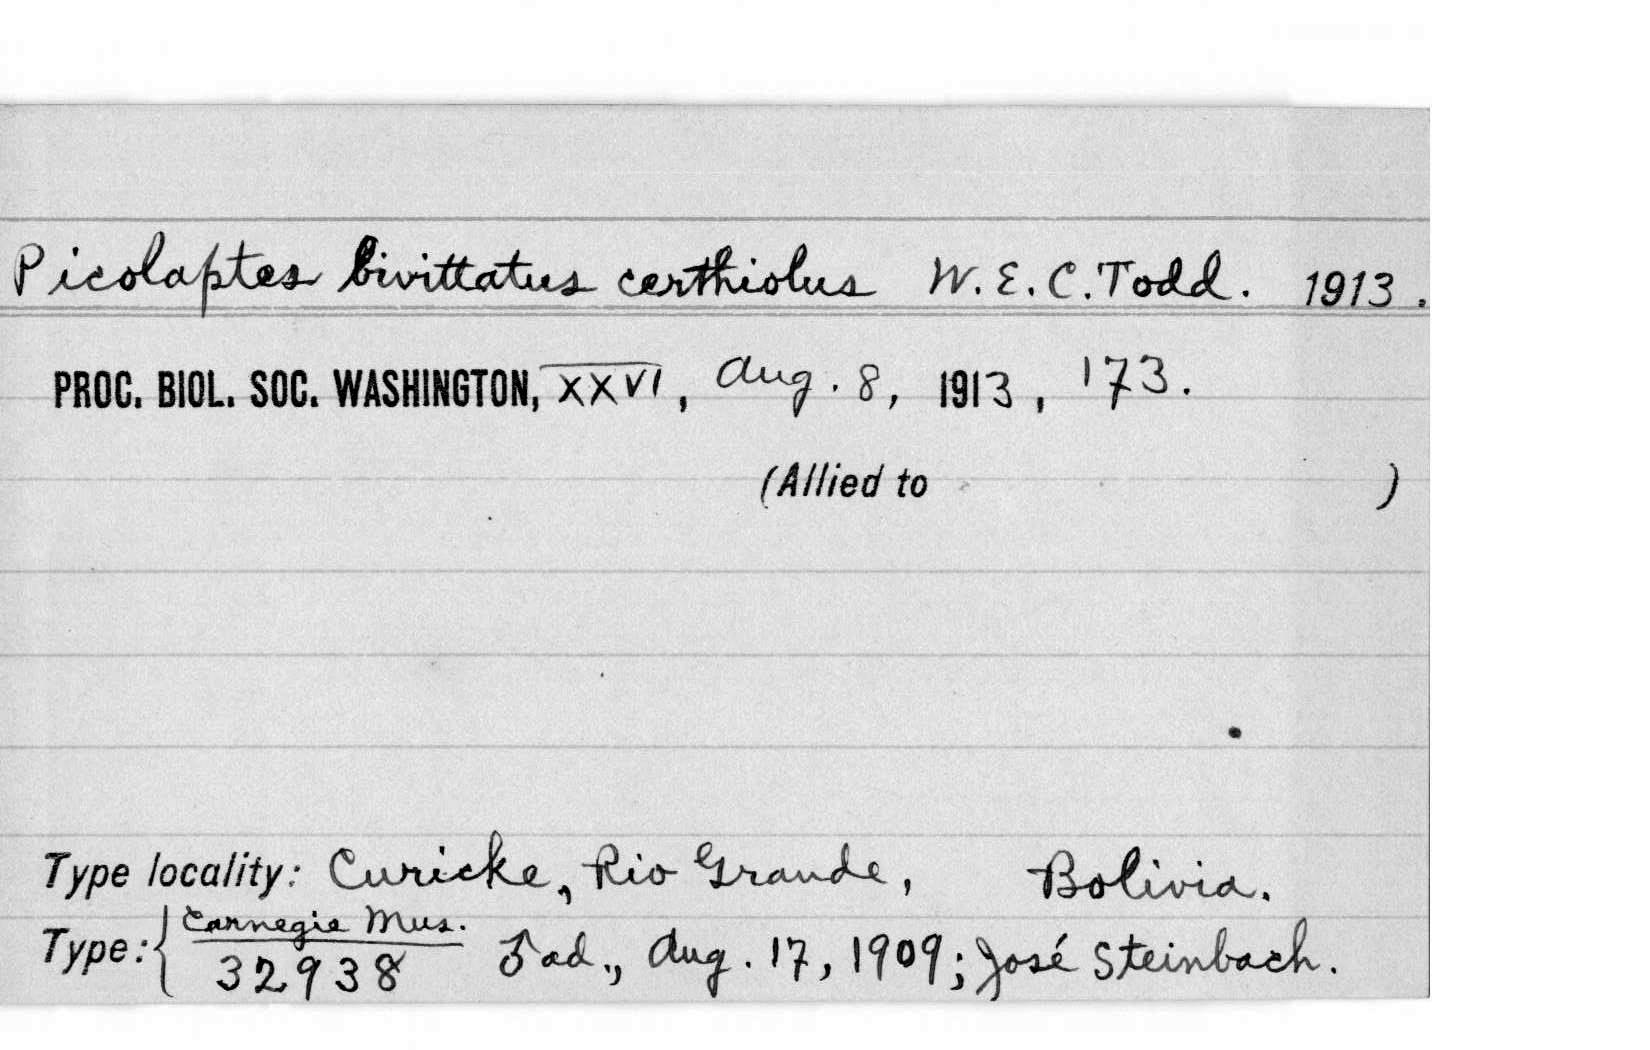 Picolaptes bivittatus certhiolus W. E. C. Todd. 1913.
PROC. BIOL. SOC. WASHINGTON, XXVI, Aug. 8, 1913, 173.
(Allied to )
Type locality: Curicke, Rio Grande, Bolivia.
Type: { Carnegie Mus.
32938 ♂ ad., Aug. 17, 1909; José Steinbach.